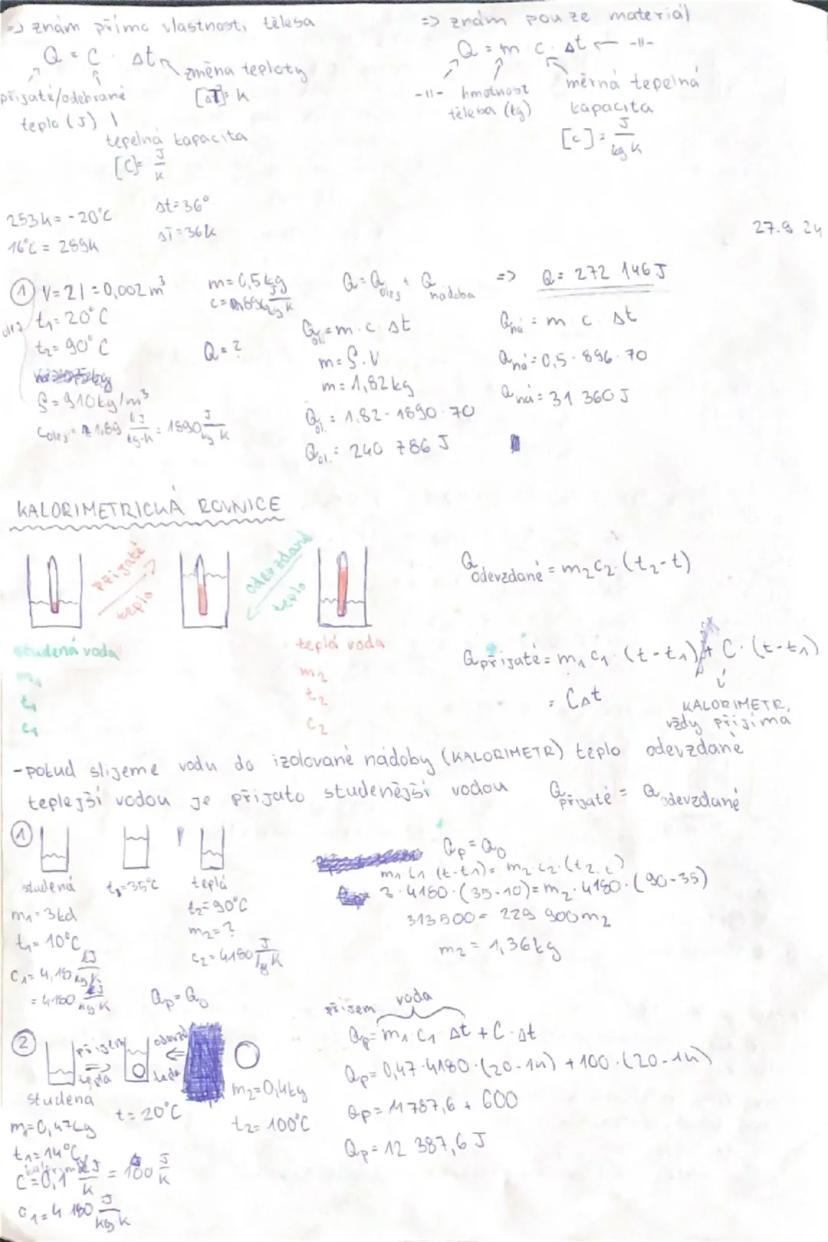 => znám přímo vlastnosti tělesa
Q = C · Δt
změna teploty
[ΔT]= K
přijaté/odebrané
teplo (J)
tepelná kapacita
[C]= J/K
=> znám pouze materiál
Q = m · c · Δt ← -11-
-11-
hmotnost
tělesa (kg)
měrná tepelná
kapacita
[c] = J/kg K
253K = -20°C
16°C = 289K
Δt = 36°
ΔT = 36K
27.9 24
① V = 2l = 0,002 m³
t₁ = 20°C
t₂ = 90°C
ρ = 910 kg/m³
C olej = 1,89 kJ/kg·K = 1890 J/kg K
m = 0,5 kg
Q = ?
Q = Q olej + Q nádoba
Q ol. = m · c · Δt
m = ρ · V
m = 1,82 kg
Q ol. = 1,82 · 1890 · 70
Q ol. = 240 786 J
=> Q = 272 146 J
Q ná = m c Δt
Q ná = 0,5 · 896 · 70
Q ná = 31 360 J
KALORIMETRICKÁ ROVNICE
přijaté
teplo
odevzdané
teplo
studená voda
m₁
t₁
c₁
teplá voda
m₂
t₂
c₂
Q odevzdané = m₂c₂ · (t₂-t)
Q přijaté = m₁c₁ · (t-t₁) + C · (t-t₁)
= CΔt
KALORIMETR,
vždy přijímá
- pokud slijeme vodu do izolované nádoby (KALORIMETR) teplo odevzdané
teplejší vodou je přijato studenější vodou Q přijaté = Q odevzdané
①
studená
m₁ = 3kg
t₁ = 10°C
c₁ = 4,18 kJ/kg K
= 4180 J/kg K
t = 35°C
teplá
t₂ = 90°C
m₂ = ?
c₂ = 4180 J/kg K
Qp = Qo
Qp = Qo
m₁ c₁ (t-t₁) = m₂ c₂ · (t₂-t)
3 · 4180 · (35-10) = m₂ · 4180 · (90-35)
313500 = 229 900 m₂
m₂ = 1,36 kg
②
příjem
tepla
studená
m = 0,47 kg
t₁ = 14°C
C = 0,1 kJ/K = 100 J/K
c₁ = 4 180 J/kg K
t = 20°C
m₂ = 0,4 kg
t₂ = 100°C
příjem
voda
Qp = m₁ c₁ Δt + C · Δt
Qp = 0,47 · 4180 · (20-14) + 100 · (20-14)
Qp = 11787,6 + 600
Qp = 12 387,6 J